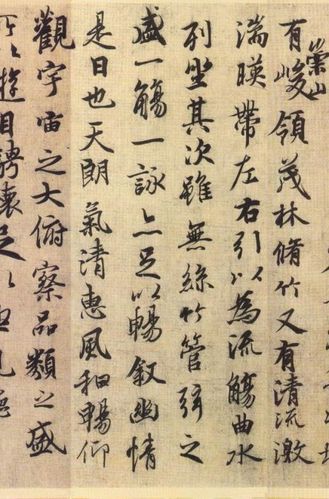 崇山
有峻領茂林脩竹又有清流激
湍暎帶左右引以為流觴曲水
列坐其次雖無絲竹管弦之
盛一觴一詠亦足以暢敘幽情
是日也天朗氣清惠風和暢仰
觀宇宙之大俯察品類之盛
所以遊目騁懷足以